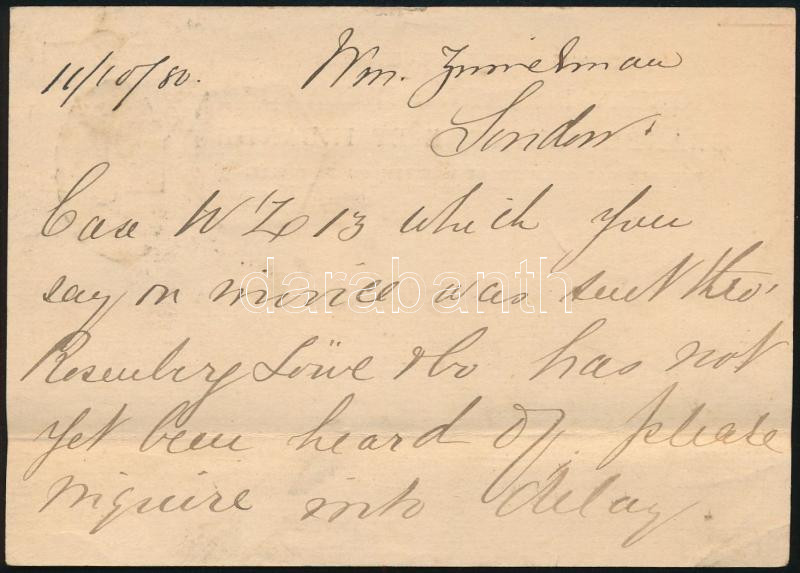 11/10/80. Wm. Zimmelman
London.
Case WZ 13 which you
say on invoice was sent thro'
Rosenberg Löwe & Co has not
yet been heard of. please
inquire into delay.
darabanth